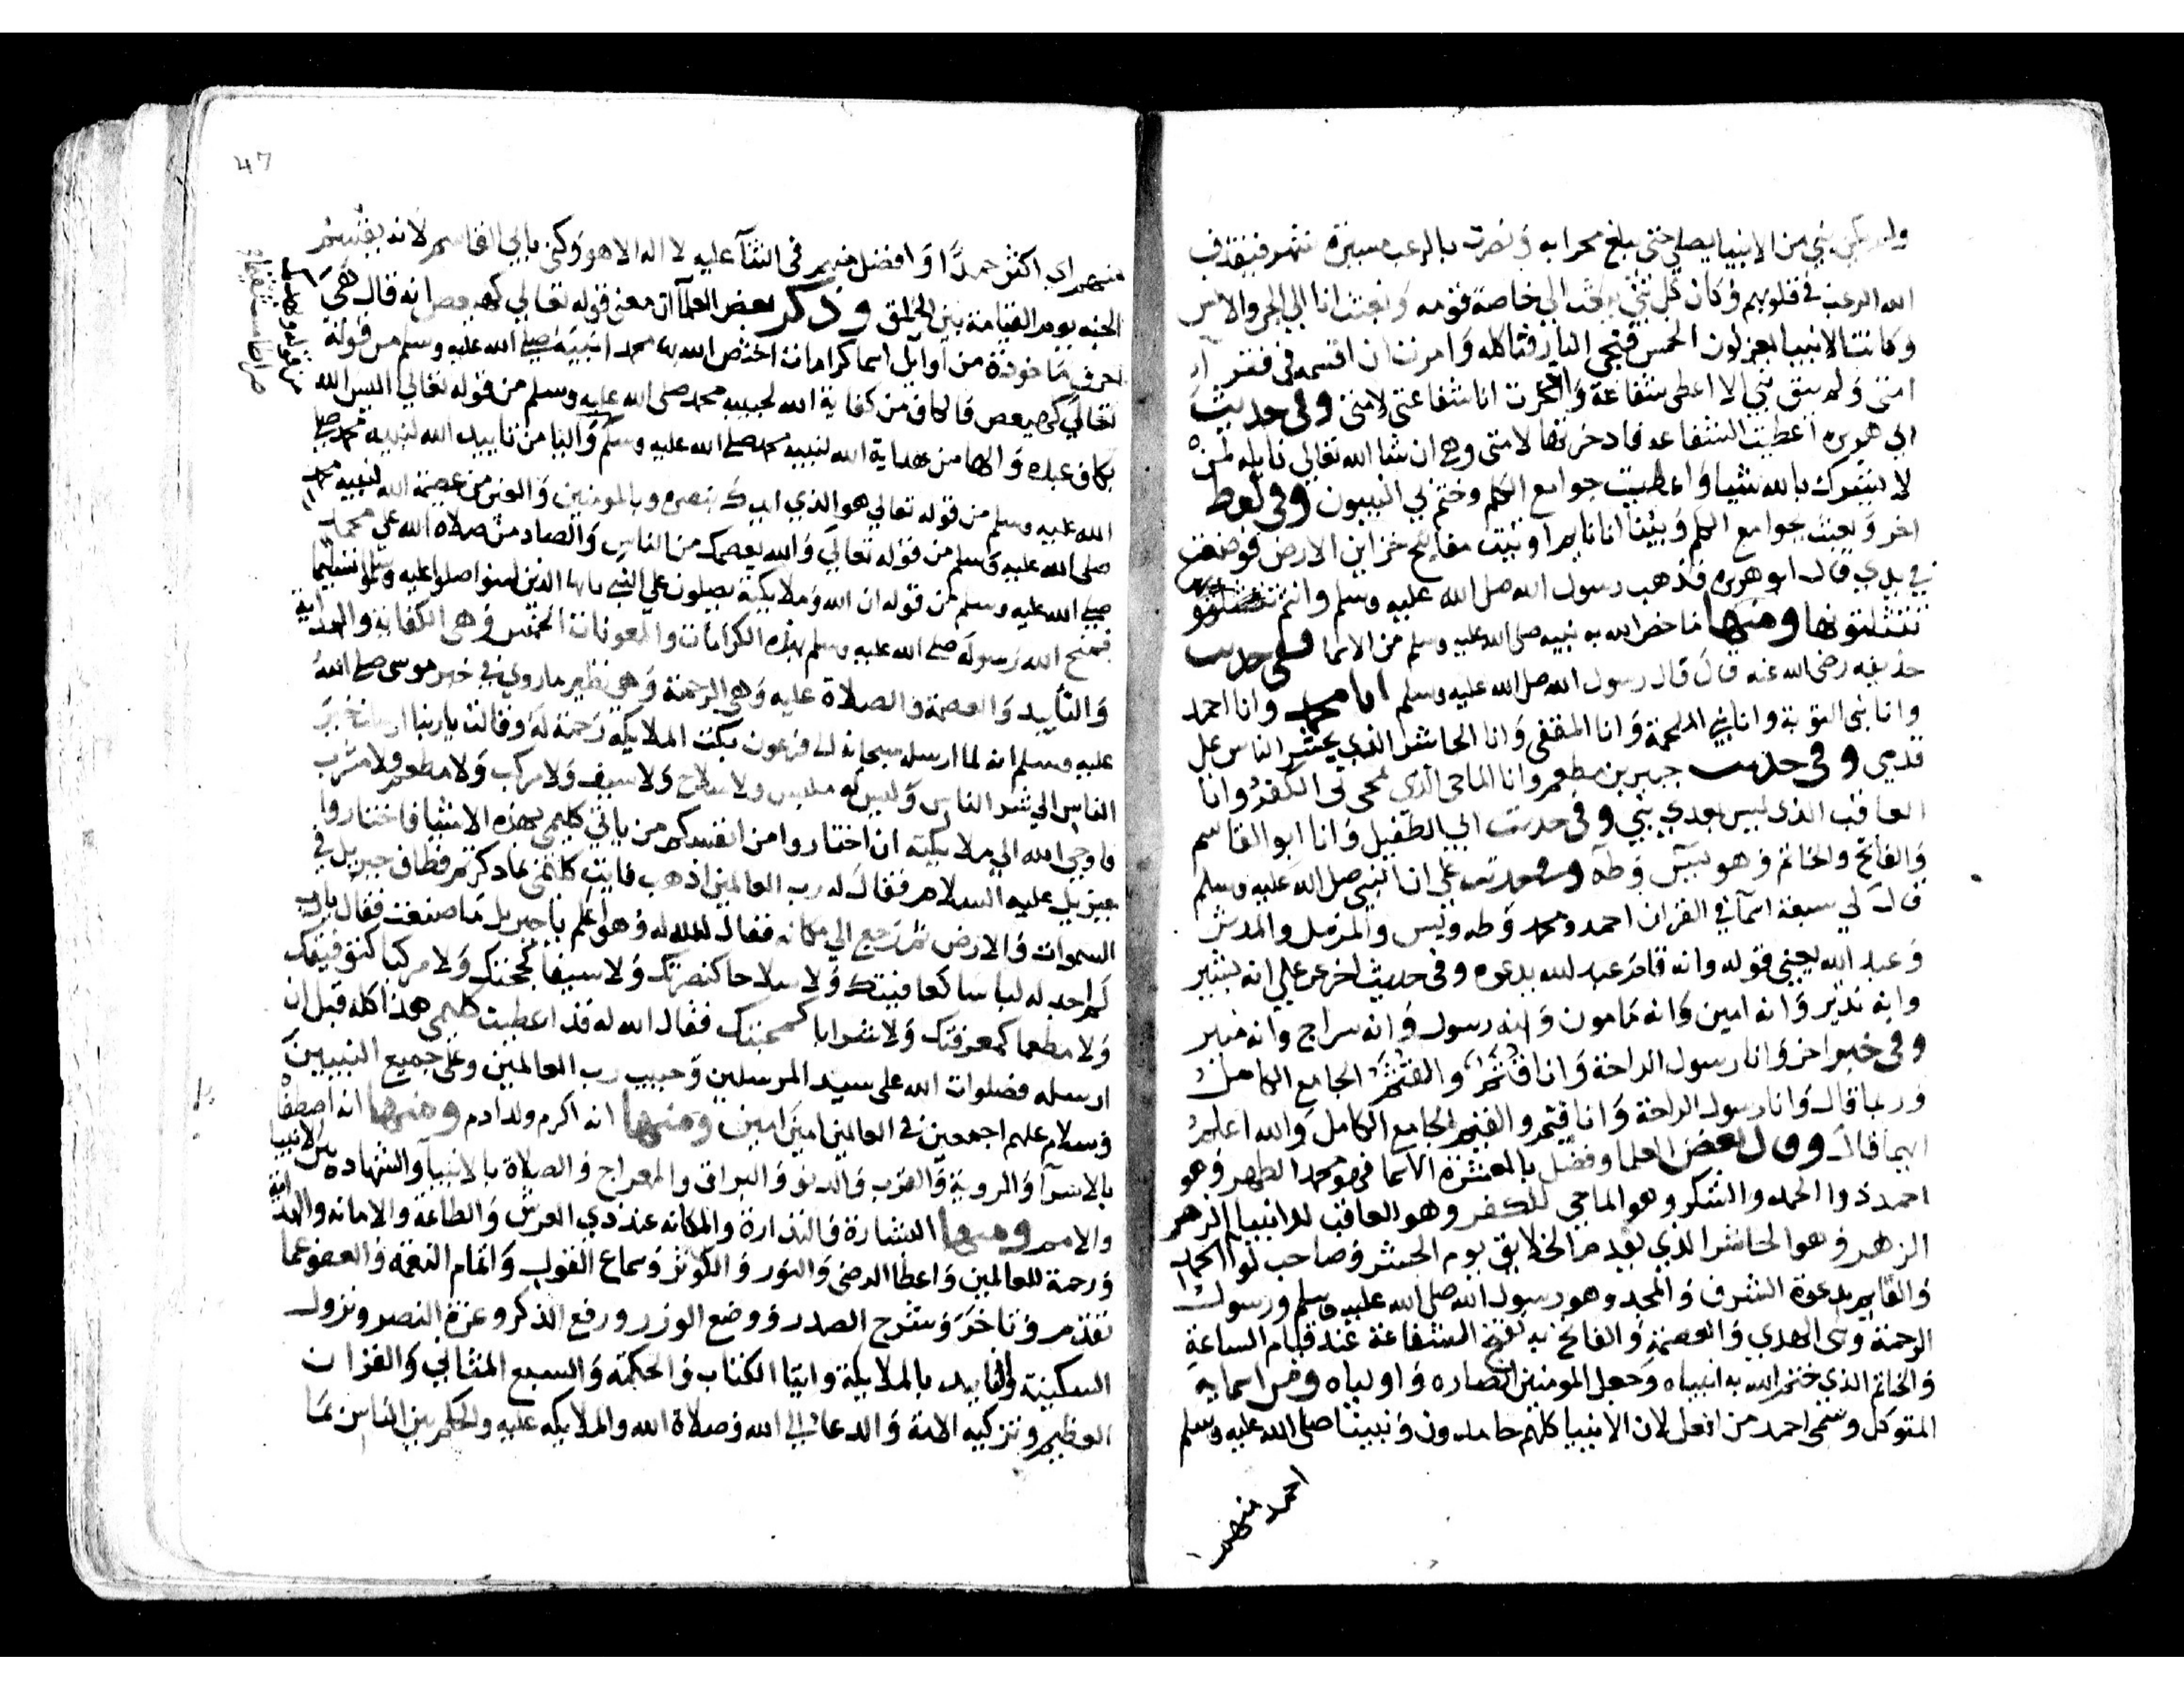 ولم يكن نبي من الانبيا يصلي حتى يبلغ محرابه ونصرت بالرعب مسيرة شهر فيقذف
الله الرعب في قلوبهم وكان كل نبي يبعث الي خاصة قومه وبعثت انا الي الجن والانس
وكانت الانبيا يعزلون الخمس فتجي النار فتاكله وامرت ان اقسمه في فقرا
امتي ولم يبق نبي الا اعطي شفاعة واخرت انا شفاعتي لامتي وفي حديث
ابي هريره اعطيت الشفاعه فادخرتها لامتي وهي ان شا الله تعالي نايله لمن
لا يشرك بالله شيا واعطيت جوامع الكلم وختم بي النبيون وفي لفظ
اخر وبعثت بجوامع الكلم وبينا انا نايم اوتيت مفاتيح خزاين الارض فوضعت
في يدي قال ابو هريره فذهب رسول الله صلى الله عليه وسلم وانتم
تنتثلونها ومنها ما خص الله به نبيه صلى الله عليه وسلم من الاسما ففي حديث
حذيفه رضي الله عنه قال قال رسول الله صلى الله عليه وسلم انا محمد وانا احمد
وانا نبي التوبة وانا نبي الملحمة وانا المقفي وانا الحاشر الذي يحشر الناس علي
قدمي وفي حديث جبير بن مطعم وانا الماحي الذي يمحى بي الكفر وانا
العاقب الذي ليس بعدي نبي وفي حديث ابي الطفيل وانا ابو القاسم
والفاتح والخاتم وهو يس وطه وفي حديث علي ان النبي صلى الله عليه وسلم
قال لي سبعة اسما في القران احمد ومحمد وطه ويس والمزمل والمدثر
وعبد الله يعني قوله وانه قام عبد الله يدعوه وفي حديث اخر عن علي انه بشير
وانه نذير وانه امين وانه مامون وانه رسول وانه سراج وانه منير
وفي خبر اخر وانا رسول الراحة وانا قثم والقثم الجامع الكامل
وربما قال وانا رسول الراحة وانا قيثم والقيثم الجامع الكامل والله اعلم
ايهما قال وقال بعض العلما وفضل بالعشرة الاسما فهو محمد الطهر وهو
احمد ذوا الحمد والشكر وهو الماحي للكفر وهو العاقب للانبيا الزهر
الزهر وهو الحاشر الذي يقدم الخلايق يوم الحشر وصاحب لوا الحمد
والقايم بدعوة الشرف والمجد وهو رسول الله صلى الله عليه وسلم ورسول
الرحمة ونبي الهدي والعصمة والفاتح به تفتح الشفاعة عند قيام الساعة
والخاتم الذي ختم الله به انبياه وجعل المومنين انصاره واولياه ومن اسمايه
المتوكل وسمي احمد من افعل لان الانبيا كلهم حامدون ونبينا صلى الله عليه وسلم
احمد منهم
47
منهم اي اكثر حمدا وافضل منهم في الثنآ عليه لا اله الا هو وكني بابي القاسم لانه يقسم
الجنه يوم القيامة بين الخلق وذكر بعض العلمآ ان معنى قوله تعالي كهيعص انه قال هي
احرف ماخوذة من اوايل اسما كرامات اختص الله بها محمد نبيه صلى الله عليه وسلم من قوله
تعالي كهيعص فالكاف من كفاية الله لحبيبه محمد صلى الله عليه وسلم من قوله تعالي اليس الله
بكاف عبده والها من هداية الله لنبيه محمد صلى الله عليه وسلم واليا من تاييد الله لنبيه محمد صلى
الله عليه وسلم من قوله تعالي هو الذي ايدك بنصره وبالمومنين والعين من عصمة الله لنبيه محمد
صلى الله عليه وسلم من قوله تعالي والله يعصمك من الناس والصاد من صلاة الله علي محمد
صلى الله عليه وسلم من قوله ان الله وملايكته يصلون علي النبي يايها الذين امنوا صلوا عليه وسلموا تسليما
فمنح الله رسوله صلى الله عليه وسلم بهذه الكرامات والمعونات الخمس وهي الكفاية والهداية
والتاييد والعصمة والصلاة عليه وهي الرحمة وهي نظير ماروي في خبر موسى صلى الله
عليه وسلم انه لما ارسله سبحانه الى فرعون بكت الملايكه رحمة له وقالت يا ربنا ارسلت خير
الناس الي شر الناس وليس له ملبس ولا سلاح ولا سيف ولا مركب ولا مطعم ولا مشرب
فاوحي الله الي ملايكته ان اختاروا من انفسكم من ياتي كليمي بهذه الاشيا فاختاروا
جبريل عليه السلام فقال له رب العالمين اذهب فايت كليمي بما ذكرتم فطاف جبريل في
السموات والارض ثم رجع الي مكانه فقال الله له وهو اعلم يا جبريل ما صنعت فقال يارب
لم اجد له لباسا كعافيتك ولا سلاحا كنصرتك ولا سيفا كحجتك ولا مركبا كتوفيقك
ولا مطعما كمعرفتك ولا شرابا كمحبتك فقال الله له قد اعطيت كليمي هذا كله قبل ان
ارسله فصلوات الله على سيد المرسلين وحبيب رب العالمين وعلى جميع النبيين
وسلام عليهم اجمعين في العالمين امين امين ومنها انه اكرم ولد ادم ومنها انه اصطفاه
بالاسرآ والروية والقرب والدنو والبراق والمعراج والصلاة بالانبيآ والشهاده بين الانبيا
والامم ومنها البشارة والنذارة والمكانه عند ذي العرش والطاعة والامانه والهداية
ورحمة للعالمين واعطا الرضى والنور والكوثر وسماع القول واتمام النعمة والعفو عما
تقدم وتاخر وشرح الصدر ووضع الوزر ورفع الذكر وعزة النصر ونزول
السكينة والتاييد بالملايكة وايتا الكتاب والحكمة والسبع المثاني والقران
العظيم وتزكيه الامة والدعا الي الله وصلاة الله والملايكه عليه والحكم بين الناس بما
من قوله ويهديك
صراطا مستقيما